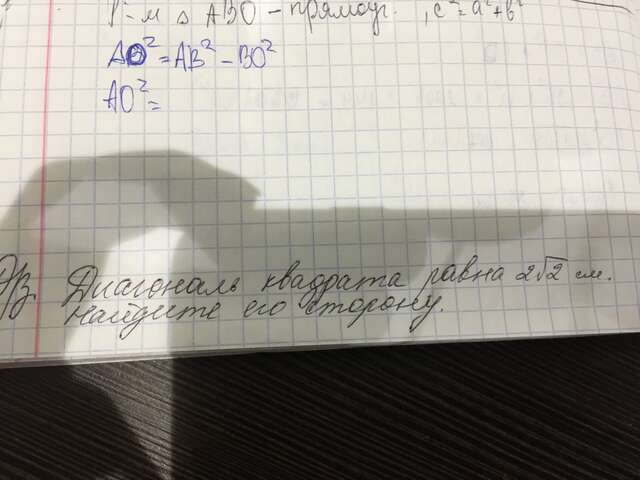 Р-м △ ABO - прямоуг. , c² = a² + b²
AO² = AB² - BO²
AO² =
Диагональ квадрата равна 2√2 см.
Найдите его сторону.